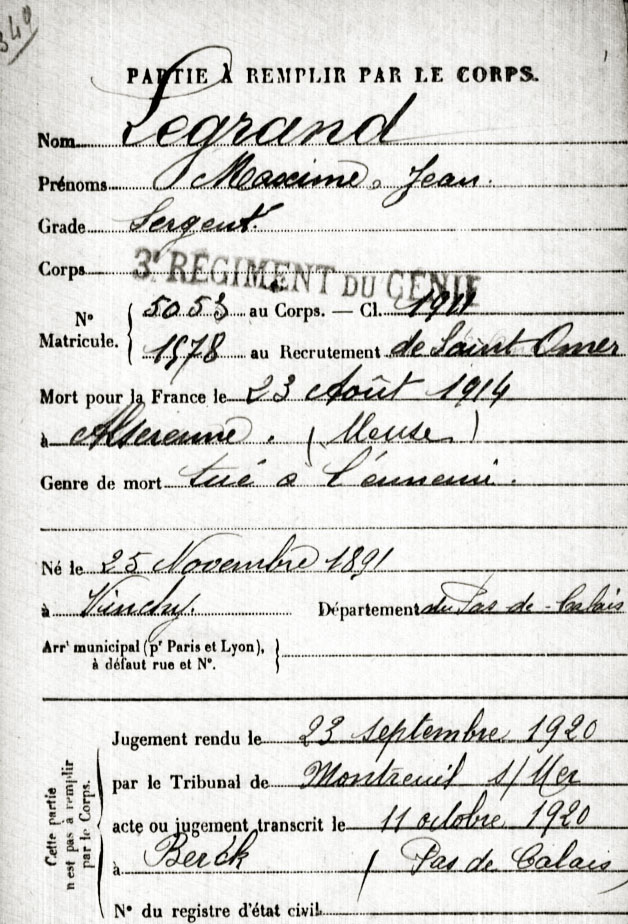 340
PARTIE À REMPLIR PAR LE CORPS.
Nom Legrand
Prénoms Maxime, Jean.
Grade Sergent.
Corps 3e RÉGIMENT DU GÉNIE
No Matricule. { 5053 au Corps. — Cl. 1911
1578 au Recrutement de Saint Omer
Mort pour la France le 23 Août 1914
à (Meuse)
Genre de mort tué à l'ennemi.
Né le 25 Novembre 1891
à Département du Pas-de-Calais
Arrt municipal (pr Paris et Lyon),
à défaut rue et No.
Cette partie n'est pas à remplir par le Corps.
Jugement rendu le 23 septembre 1920
par le Tribunal de Montreuil s/Mer
acte ou jugement transcrit le 11 octobre 1920
à Berck (Pas de Calais)
No du registre d'état civil